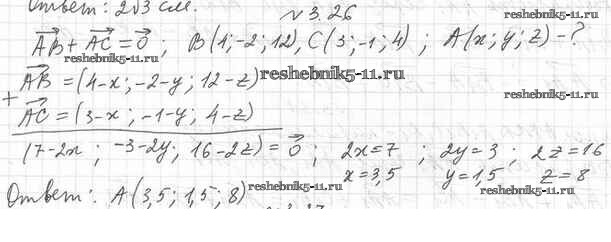 Ответ: 2√3 см.
№3.26 reshebnik5-11.ru
AB + AC = 0 ; B(4;-2;12), C(3;-1;4) ; A(x;y;z)-?
reshebnik5-11.ru
AB = (4-x ; -2-y ; 12-z) reshebnik5-11.ru
+ reshebnik5-11.ru
AC = (3-x ; -1-y ; 4-z)
(7-2x ; -3-2y ; 16-2z) = 0 ; 2x=7 ; 2y=3 ; 2z=16
x=3,5 y=1,5 z=8
Ответ: A(3,5; 1,5; 8) reshebnik5-11.ru reshebnik5-11.ru